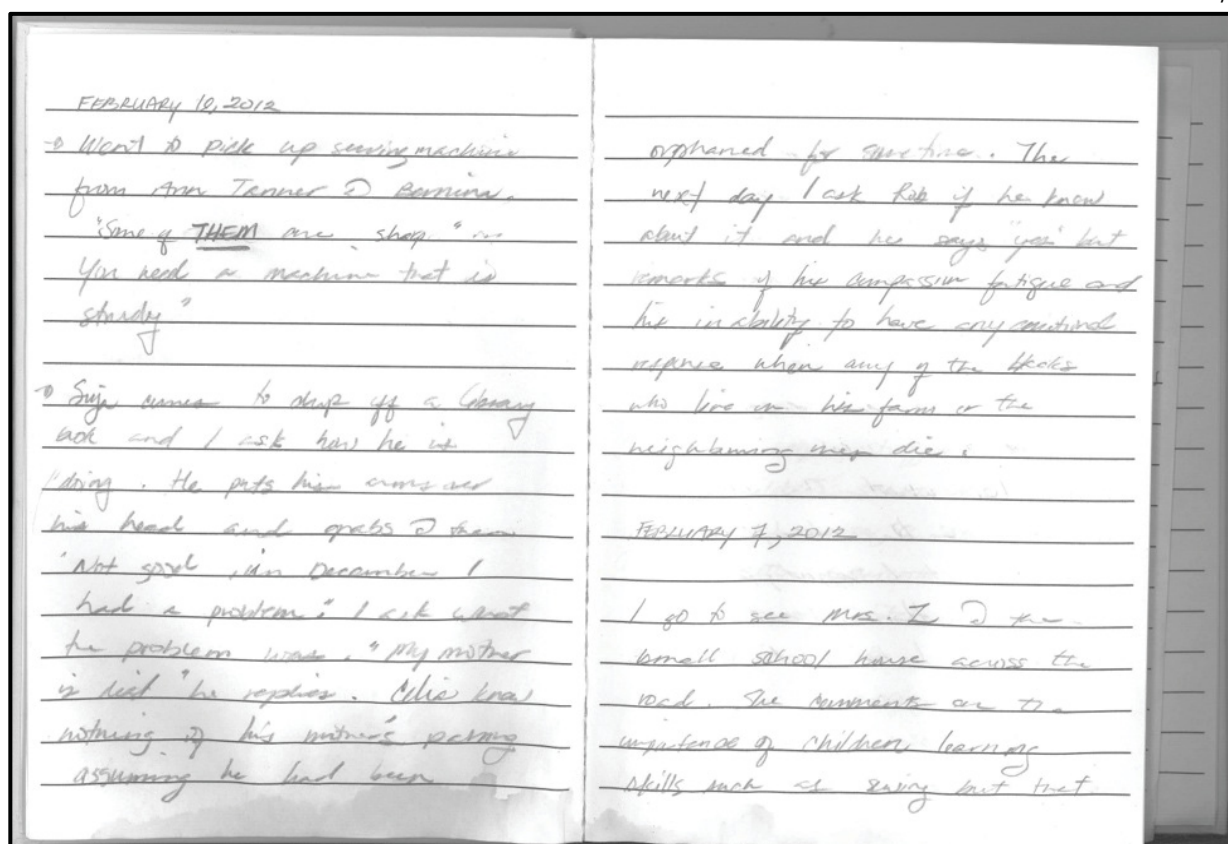 FEBRUARY 10, 2012
Went to pick up sewing machine
from Ann Tanner @ Bernina.
"Some of THEM are sharp"
You need a machine that is
sturdy"
comes to drop off a library
book and I ask how he is
doing. He puts his arms over
his head and grabs @ them
"Not good, in December I
had a problem." I ask what
the problem was. "My mother
is dead" he replies. Celia knew
nothing of his mother's passing
assuming he had been
orphaned for some time. The
next day I ask Rob if he knew
about it and he says "yes" but
remarks of his compassion fatigue and
his inability to have any emotional
response when any of the
who live on his farm or the
neighbouring ones die.
FEBRUARY 7, 2012
I go to see Mrs. I @ the
small school house across the
road. She comments on the
importance of children learning
skills such as sewing but that